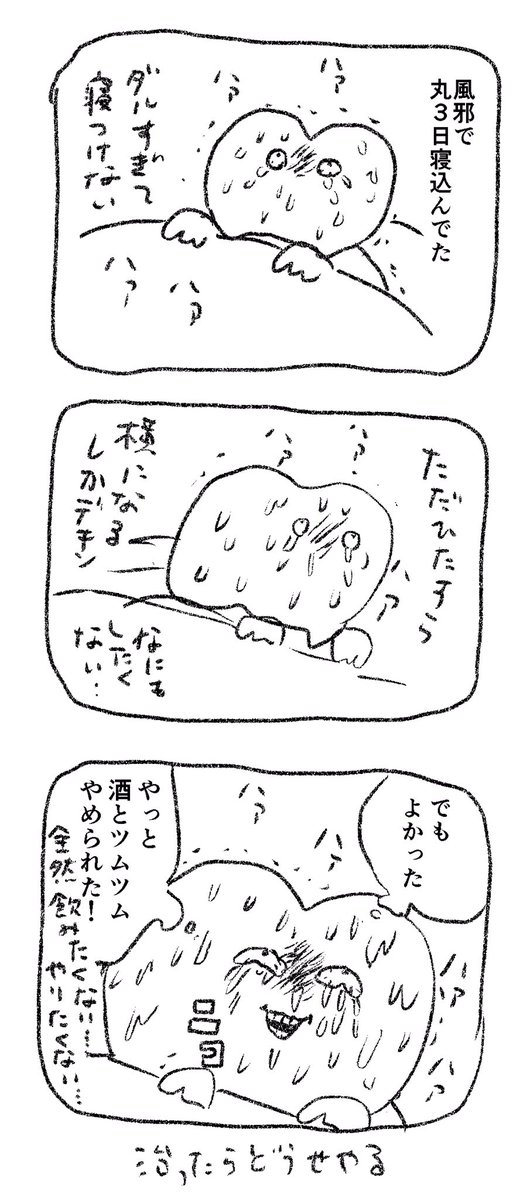 風邪で
丸3日寝込んでた
ハァ
ハァ
ダルすぎて
寝つけない
ハァ
ハァ
ただひたすら
ハァ
ハァ
ハァ
横になる
しかデキン
なにも
したく
ない…
でも
よかった
ハァ
ハァ
ハァ
やっと
酒とツムツム
やめられた!
全然飲みたくない…
やりたくない…
治ったらどうせやる